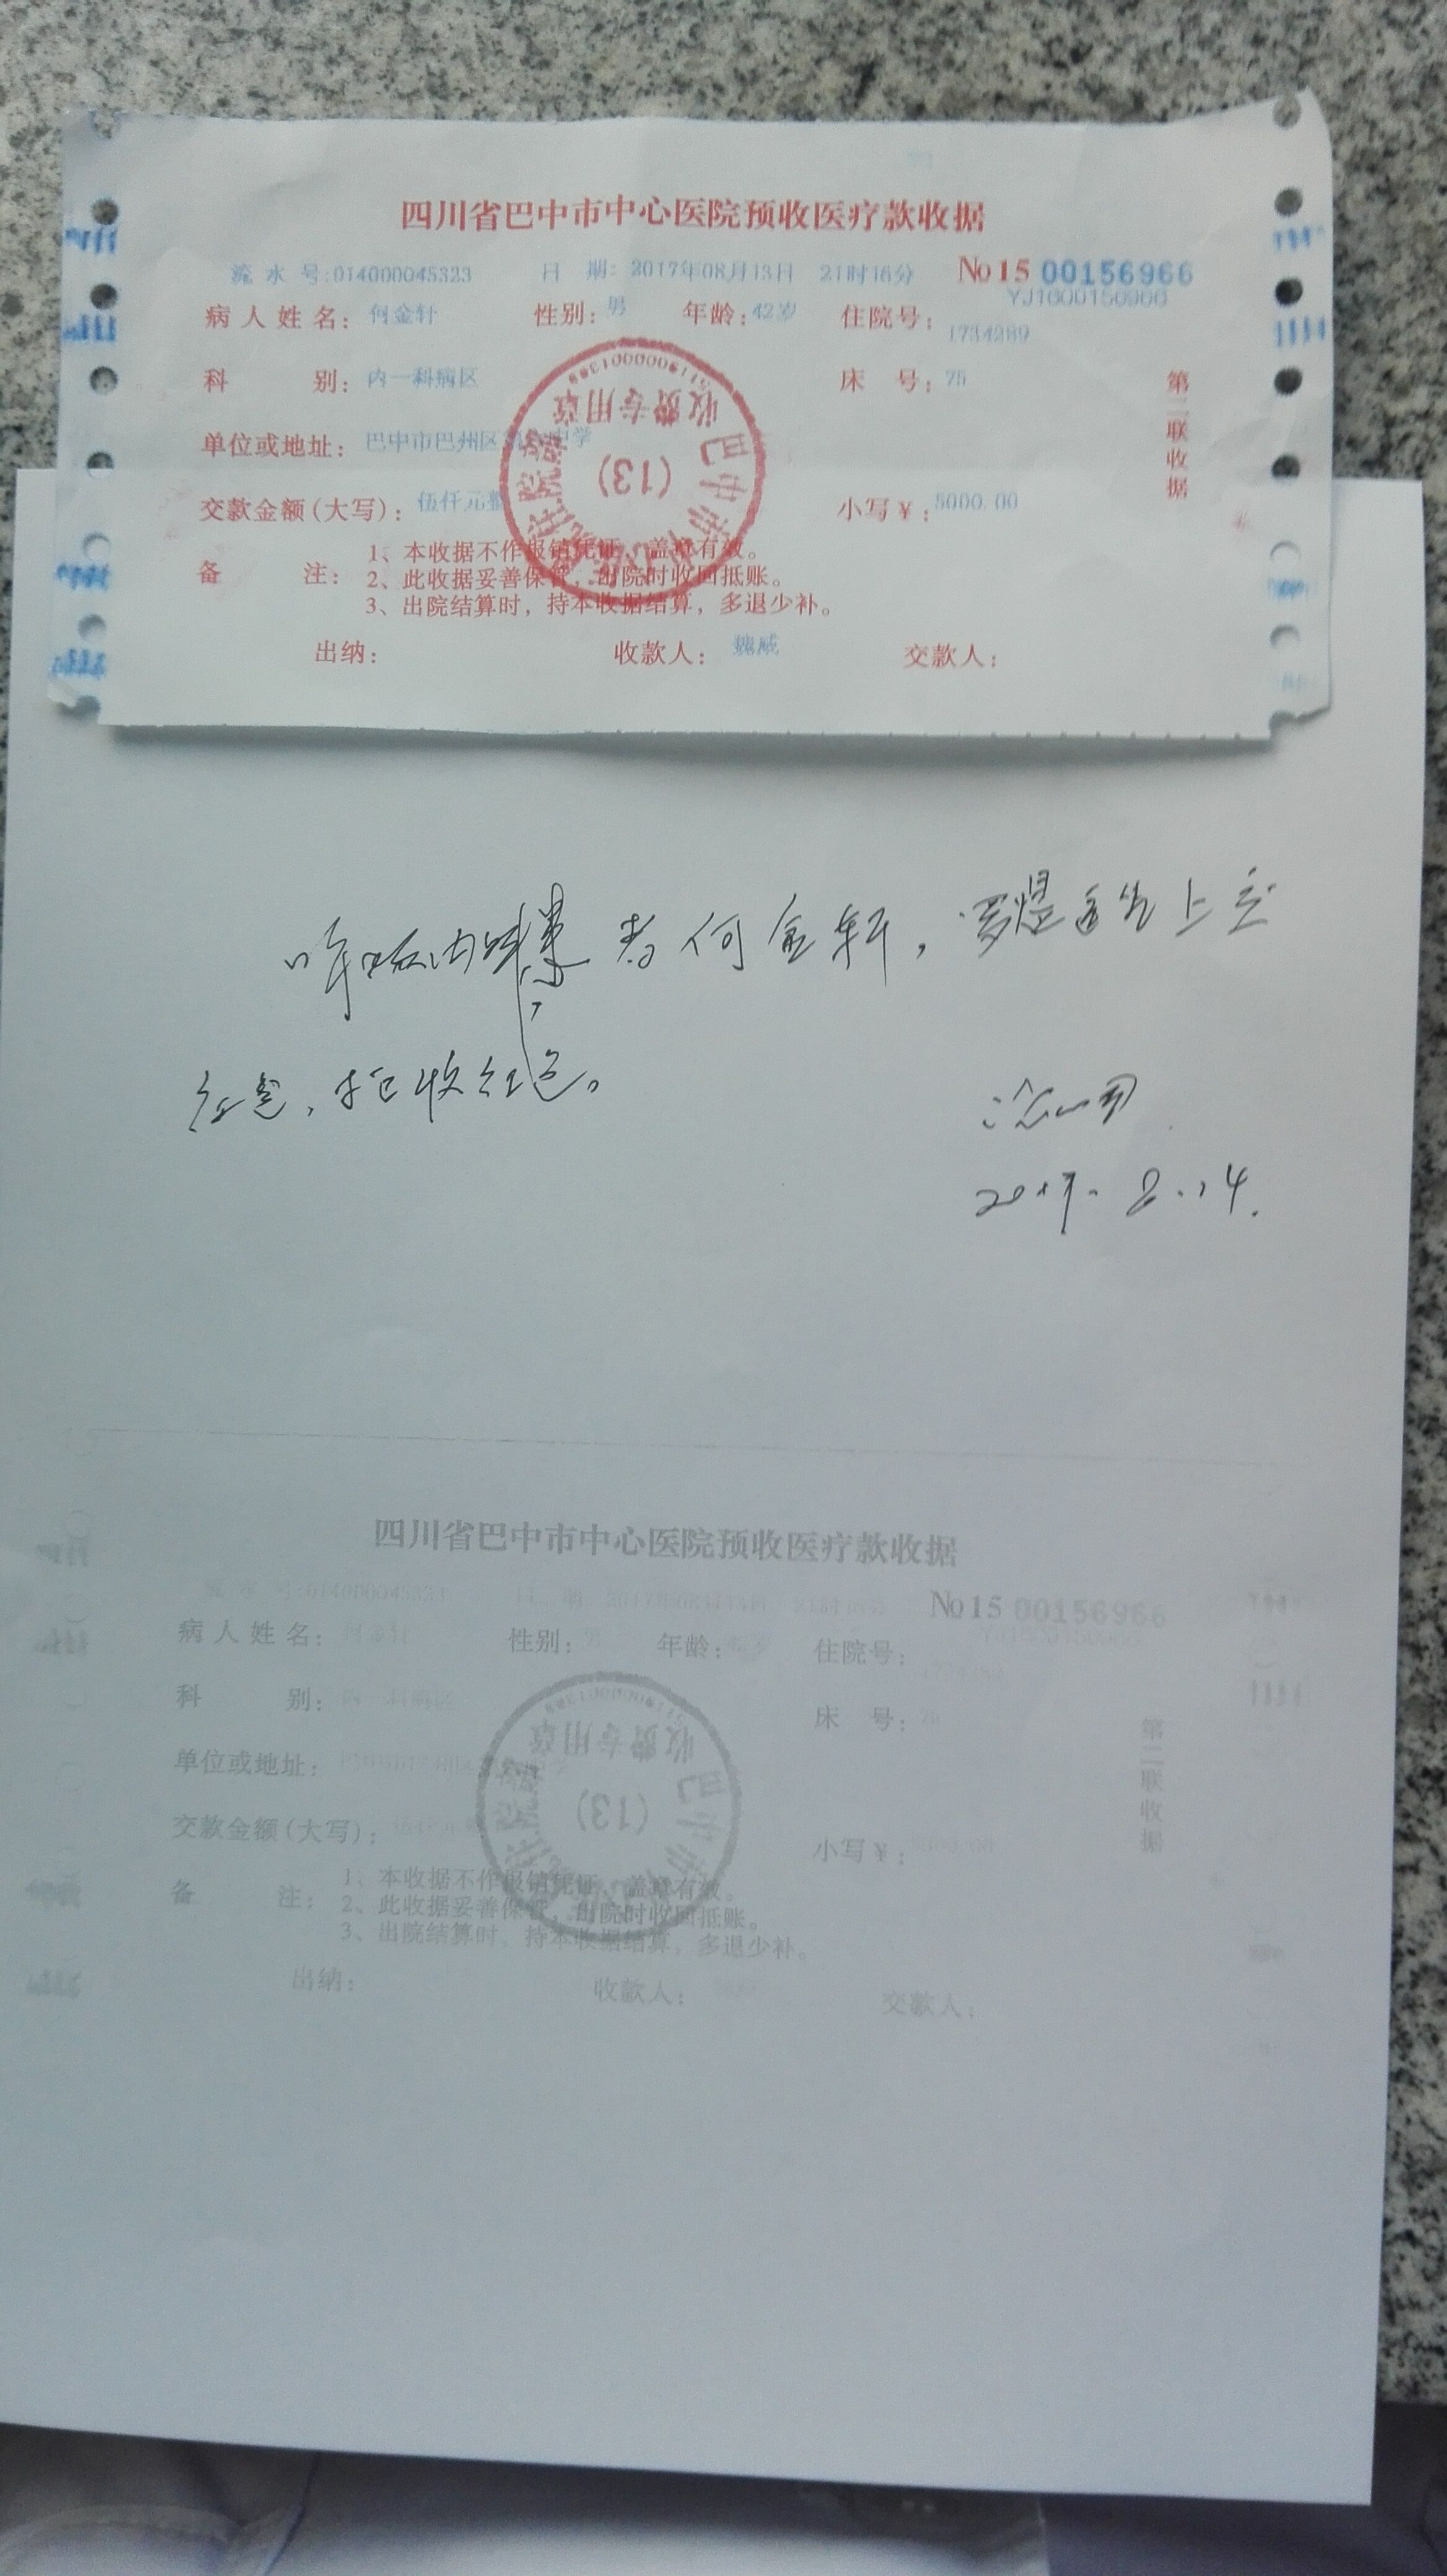 四川省巴中市中心医院预收医疗款收据
流水号:014000045323 日期: 2017年08月13日 21时16分 No15 00156966
病人姓名: 何金轩 性别: 男 年龄: 42岁 住院号: 1734289
科别: 内一科病区 床号: 75
单位或地址: 巴中市巴州区 中学
交款金额(大写): 伍仟元整 小写¥: 5000.00
备注:
1、本收据不作报销凭证、盖章有效。
2、此收据妥善保管, 出院时收回抵账。
3、出院结算时, 持本收据结算, 多退少补。
出纳: 收款人: 魏威 交款人:
第二联收据
收费专用章
(13)
呼吸内科 患者何金轩, 上交
红包, 拒收红包。
2017. 8. 14.
四川省巴中市中心医院预收医疗款收据
号:014000045323 No15 00156966
病人姓名: 性别: 男 年龄: 住院号:
科别: 床号:
单位或地址:
交款金额(大写): 小写¥:
备注:
1、本收据不作报销凭证、盖章有效。
2、此收据妥善保管, 出院时收回抵账。
3、出院结算时, 持本收据结算, 多退少补。
出纳: 收款人: 交款人:
第二联收据
收费专用章
(13)